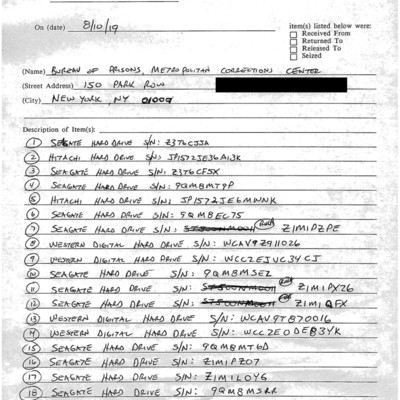 On (date) 8/10/19
item(s) listed below were:
Received From
Returned To
Released To
Seized
(Name) BUREAU OF PRISONS, METROPOLITAN CORRECTION CENTER
(Street Address) 150 PARK ROW
(City) NEW YORK, NY
Description of Item(s):
1 SEAGATE HARD DRIVE S/N: Z376CJJA
2 HITACHI HARD DRIVE S/N: JP1572JE36A13K
3 SEAGATE HARD DRIVE S/N: Z376CF5X
4 SEAGATE HARD DRIVE S/N: 9QM8MT9P
5 HITACHI HARD DRIVE S/N: JP1572JE6MWNK
6 SEAGATE HARD DRIVE S/N: 9QM8EC75
7 SEAGATE HARD DRIVE S/N: Z1M1PZPE
8 WESTERN DIGITAL HARD DRIVE S/N: WCAV9Z911026
9 WESTERN DIGITAL HARD DRIVE S/N: WCC2EJVC34CJ
10 SEAGATE HARD DRIVE S/N: 9QM8MSEZ
11 SEAGATE HARD DRIVE S/N: Z1M1PX26
12 SEAGATE HARD DRIVE S/N: Z1M1QFX
13 WESTERN DIGITAL HARD DRIVE S/N: WCAV9T870016
14 WESTERN DIGITAL HARD DRIVE S/N: WCC2E0DEB3YK
15 SEAGATE HARD DRIVE S/N: 9QM8MT6D
16 SEAGATE HARD DRIVE S/N: Z1M1PZ07
17 SEAGATE HARD DRIVE S/N: Z1M1L0YG
18 SEAGATE HARD DRIVE S/N: 9QM8MSRR